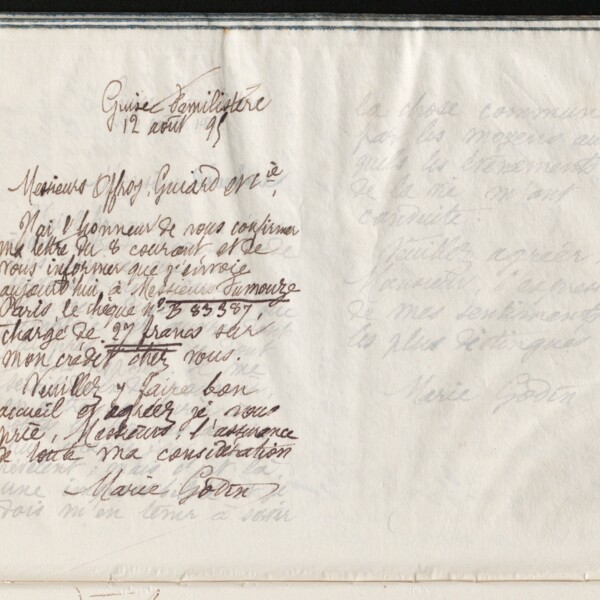 Guise Familistère
12 août 95
Messieurs Offroy, Guiard et Cie,
J'ai l'honneur de vous confirmer
ma lettre du 8 courant et de
vous informer que j'envoie
aujourd'hui, à Messieurs Dumouze
Paris le chèque n° B 83387,
chargé de 27 francs sur
mon crédit chez vous.
Veuillez y faire bon
accueil et agréer je vous
prie, Messieurs, l'assurance
de toute ma considération
Marie Godin
dois m'en tenir à
la chose commun
par les moyens au
quels les événements
de la vie m'ont
conduite.
Veuillez agréer
Monsieur, l'express
de mes sentiments
les plus distingués
Marie Godin